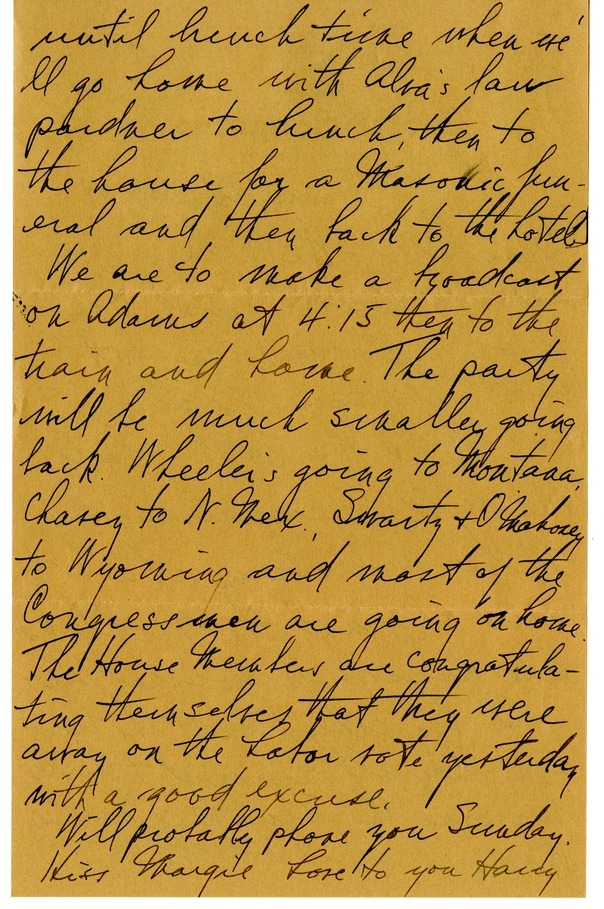 until lunch time when we'
ll go home with Alva's law
pardner to lunch, then to
the house for a Masonic fun-
eral and then back to the hotel.
We are to make a broadcast
on Adams at 4:15 then to the
train and home. The party
will be much smaller going
back. Wheeler is going to Montana,
Chavez to N. Mex., Swartz & O'Mahoney
to Wyoming and most of the
Congressmen are going on home.
The House Members are congratula-
ting themselves that they were
away on the Labor vote yesterday
with a good excuse.
Will probally phone you Sunday.
Kiss Margie Love to you Harry